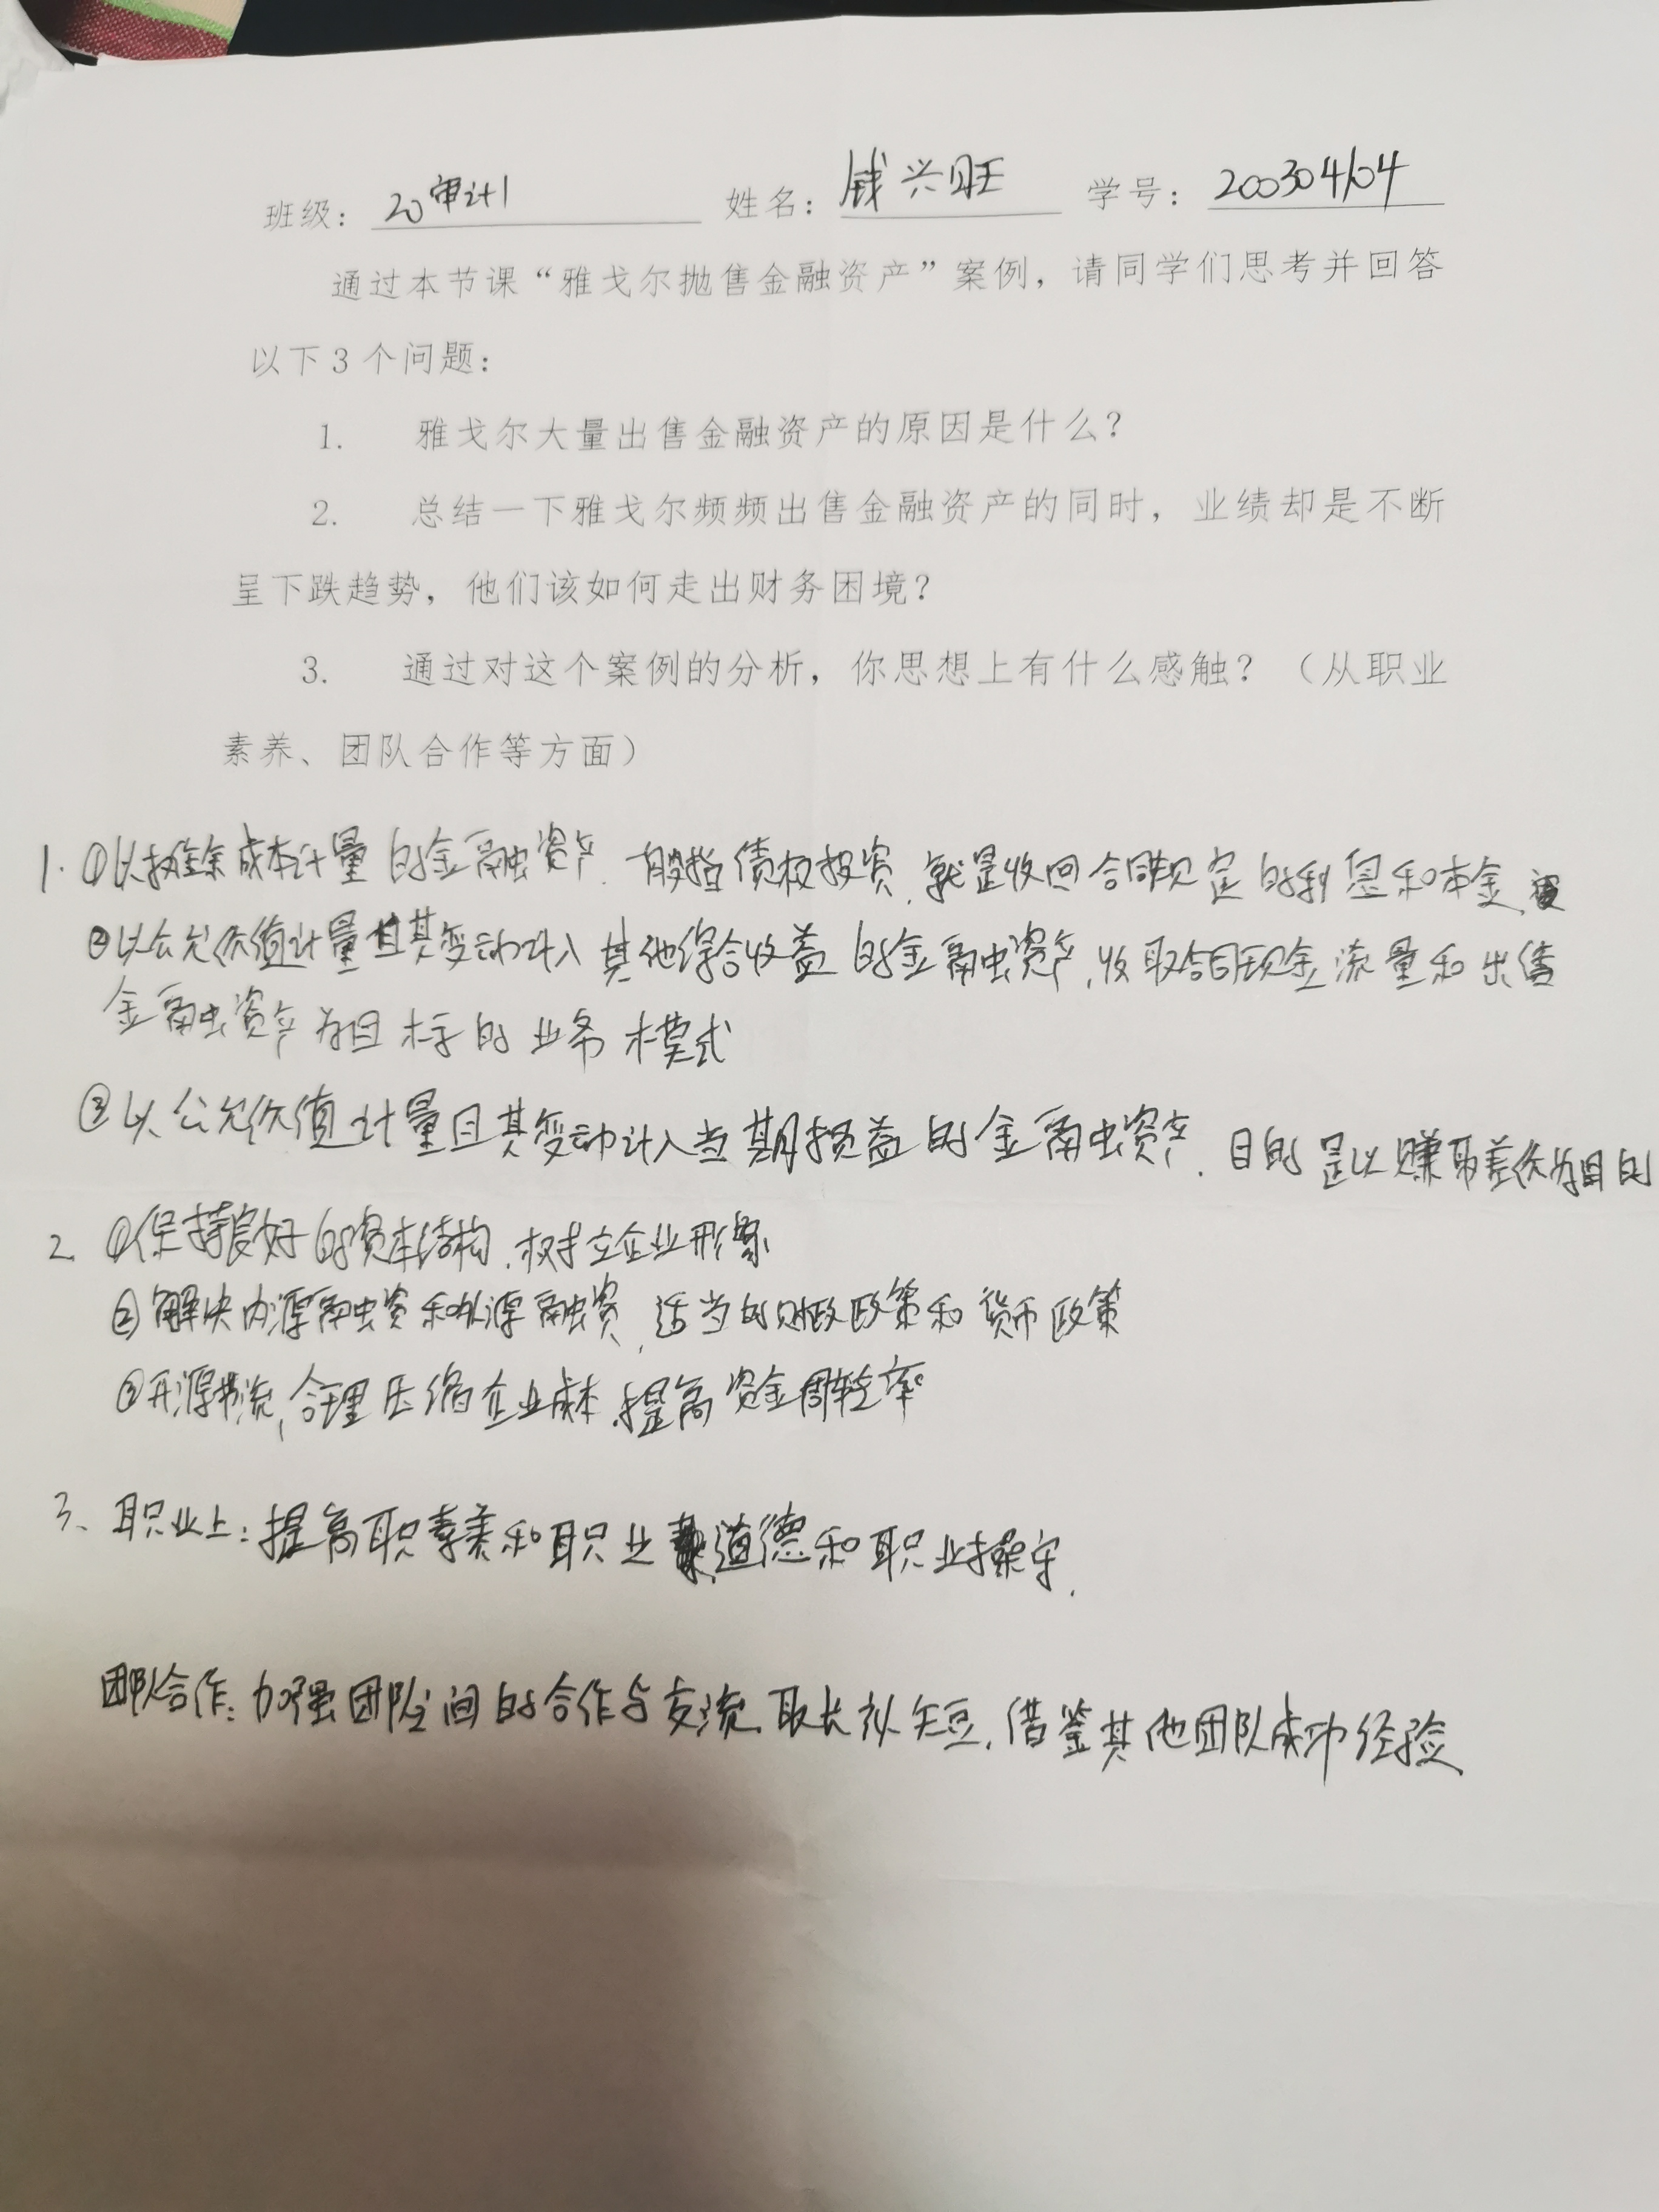 班级：20审计1 姓名：钱兴旺 学号：200304104
通过本节课“雅戈尔抛售金融资产”案例，请同学们思考并回答
以下3个问题：
1. 雅戈尔大量出售金融资产的原因是什么？
2. 总结一下雅戈尔频频出售金融资产的同时，业绩却是不断
呈下跌趋势，他们该如何走出财务困境？
3. 通过对这个案例的分析，你思想上有什么感触？（从职业
素养、团队合作等方面）
1. ①以摊余成本计量的金融资产．一般指债权投资，就是收回合同规定的利息和本金，
②以公允价值计量且其变动计入其他综合收益的金融资产，收取合同现金流量和出售
金融资产为目标的业务模式
③以公允价值计量且其变动计入当期损益的金融资产．目的是以赚取差价为目的
2. ①保持良好的资本结构，树立企业形象
②解决内源融资和外源融资，适当的财政政策和货币政策
③开源节流，合理压缩企业成本，提高资金周转率
3、职业上：提高职素养和职业道德和职业操守．
团队合作：加强团队之间的合作与交流，取长补短，借鉴其他团队成功经验